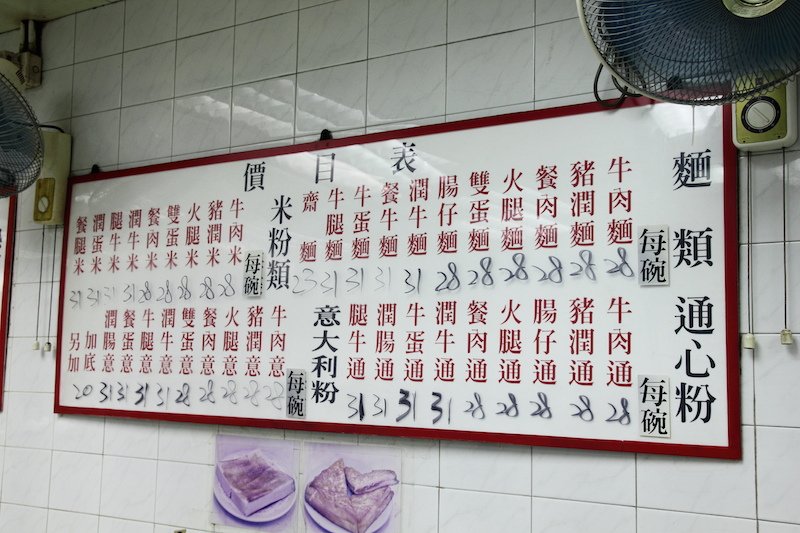 價目表
麵類
每碗
牛肉麵 28
豬潤麵 28
餐肉麵 28
火腿麵 28
雙蛋麵 28
腸仔麵 28
潤牛麵 31
餐牛麵 31
牛蛋麵 31
牛腿麵 31
齋麵 23
米粉類
每碗
牛肉米 28
豬潤米 28
火腿米 28
雙蛋米 28
餐肉米 28
潤牛米 31
腿牛米 31
潤蛋米 31
餐腿米 31
通心粉
每碗
牛肉通 28
豬潤通 28
腸仔通 28
火腿通 28
餐肉通 28
潤牛通 31
牛蛋通 31
潤腸通 31
腿牛通 31
意大利粉
每碗
牛肉意 28
豬潤意 28
火腿意 28
餐肉意 28
雙蛋意 28
潤牛意 31
牛腿意 31
餐蛋意 31
潤腸意 31
加底
另加 20